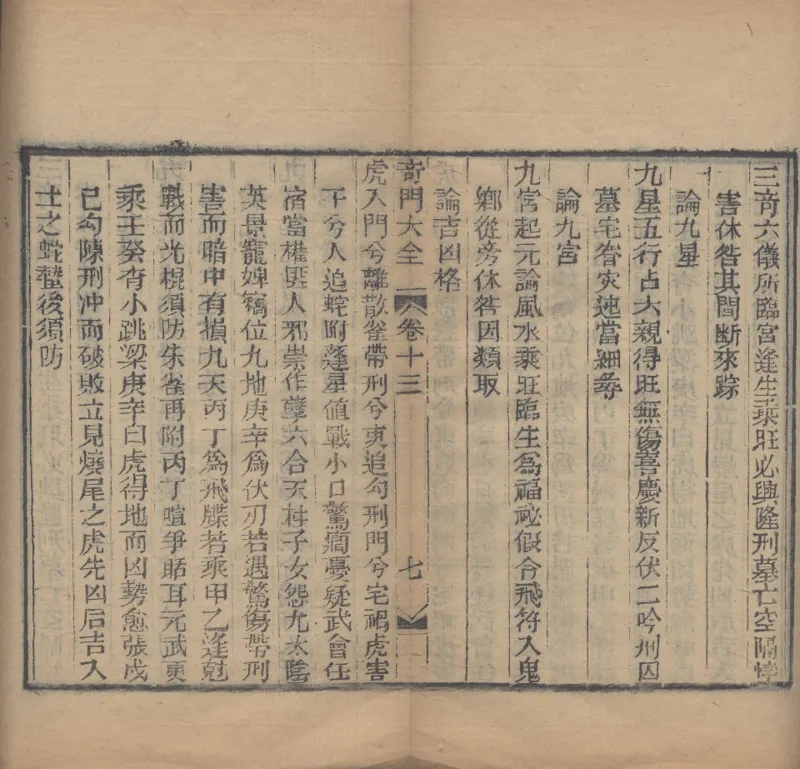 三奇六儀所臨宮逢生乘旺必興隆刑墓亡空隔悖
害休咎其間斷來踪
論九星
九星五行占六親得旺無傷喜慶新反伏二吟刑囚
墓宅眷灾迍當細尋
論九宮
九宮起元論風水乘旺臨生爲福祕假令飛符入鬼
鄉從旁休咎因類取
論吉凶格
奇門大全 卷十三 七
虎入門兮離散雀帶刑兮吏追勾刑門兮宅禍虎害
干兮人追蛇附蓬星值戰小口驚癎憂疑武會任
宿當權匪人邪祟作孽六合天柱子女怨尤太陰
英景寵婢竊位九地庚辛爲伏刃若遇驚傷帶刑
害而暗中有損九天丙丁爲飛牒若乘甲乙逢尅
戰而光棍須防朱雀再附丙丁喧爭聒耳元武更
乘壬癸夯小跳梁庚辛白虎得地而凶勢愈張戊
己勾陳刑冲而破敗立見燒尾之虎先凶后吉入
土之蛇蟄後須防